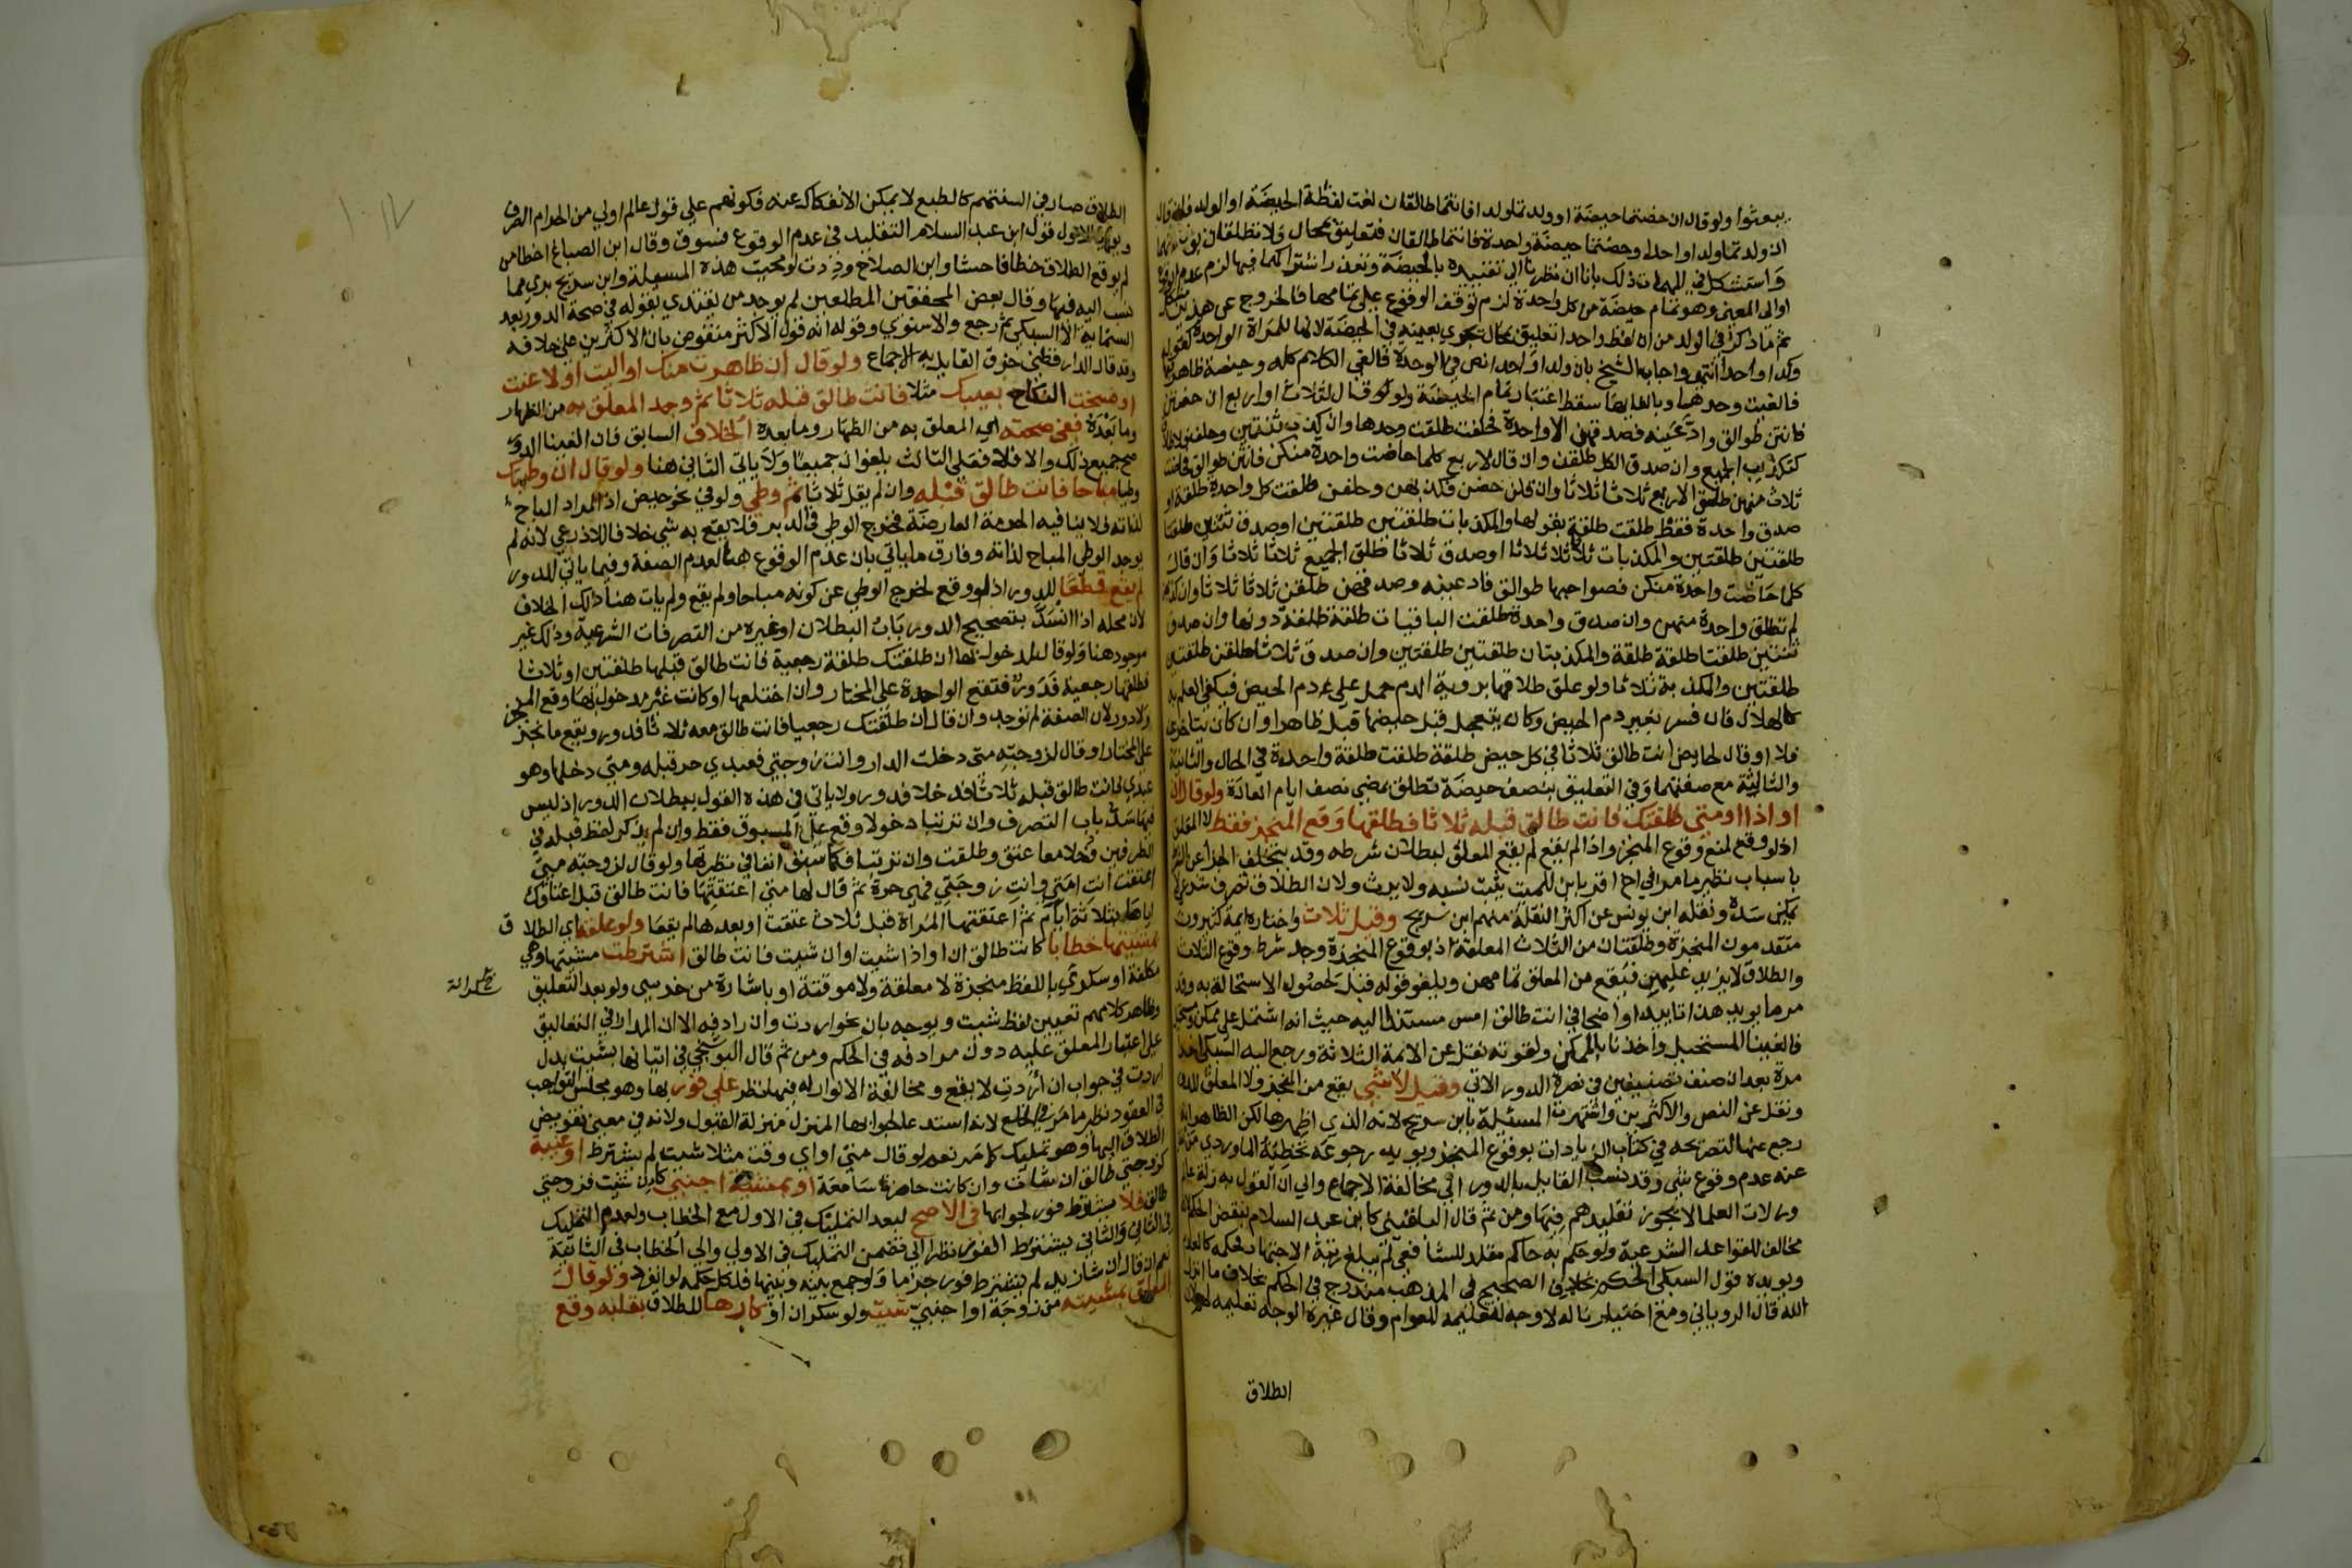 يبعثوا ولو قال ان حضتما حيضة او ولدتما ولدا فانتما طالقان لغت لفظة الحيضة او الولد فان قال
ان ولدتما ولدا واحدا وحضتما حيضة واحدة فانتما طالقان فتعليق بمحال ولا تطلقان
واستشكل في المهمات ذلك بانا ان نظرنا الى تقييده بالحيضة وتعذر اشتراكهما فيها لزم عدم الوقوع
او الى المعنى وهو تمام حيضة من كل واحدة لزم توقف الوقوع على تمامها فالخروج عن هذين مشكل
ثم ما ذكر في الولد من ان لفظ واحدا تعليق بمحال تجري بعينه في الحيضة لانها للمراة الواحدة كقوله
ولدا واحدا انتهى واجاب الشيخ بان ولدا واحدا نص في الوحدة فالغي الكلام كله وحيضة ظاهر
فالغيت وحدها وبالغايها سقط اعتبار تمام الحيضة ولو قال لثلاث او اربع ان حضتن
فانتن طوالق وادعينه فصدقهن الا واحدة طلقت وحدها وان كذب ثنتين وحلفن
كتكذيب الجميع وان صدق الكل طلقن وان قال لاربع كلما حاضت واحدة منكن فانتن طوالق
ثلاث منهن طلق الاربع ثلاثا ثلاثا وان قلن حضن فكذبهن وحلفن طلقت كل واحدة طلقة او
صدق واحدة فقط طلقت طلقة بقولها والمكذبات طلقتين طلقتين او صدق ثنتين طلقتا
طلقتين طلقتين والمكذبات ثلاثا ثلاثا او صدق ثلاثا طلق الجميع ثلاثا ثلاثا وان قال
كلما حاضت واحدة منكن فصواحبها طوالق فادعينه وصدقهن طلقن ثلاثا ثلاثا وان كذبهن
لم تطلق واحدة منهن وان صدق واحدة طلقت الباقيات طلقة طلقة دونها وان صدق
ثنتين طلقتا طلقة طلقة والمكذبتان طلقتين طلقتين وان صدق ثلاثا طلقن طلقتين
طلقتين والمكذبة ثلاثا ولو علق طلاقها بروية الدم حمل على دم الحيض فيكفي العلم به
كالهلال فان فسر بغير دم الحيض وكان يتعجل قبل حيضها قبل ظاهرا وان كان يتاخر عنه
فلا او قال لحايض انت طالق ثلاثا في كل حيض طلقة طلقت طلقة واحدة في الحال والثانية
والثالثة مع صفتهما وفي التعليق بنصف حيضة تطلق بمضي نصف ايام العادة ولو قال ان
او اذا او متى طلقتك فانت طالق قبله ثلاثا فطلقها وقع المنجز فقط لا المعلق
اذ لو وقع لمنع وقوع المنجز واذا لم يقع لم يقع المعلق لبطلان شرطه وقد يتخلف الجزا عن الشرط
باسباب نظير ما مر في اخ اقر بابن للميت يثبت نسبه ولا يرث ولان الطلاق تصرف شرعي لا
يمكن سده ونقله ابن يونس عن اكثر النقلة منهم ابن سريج وقيل ثلاث واختاره ايمة كثيرون
متقدمون المنجزة وطلقتان من الثلاث المعلقة اذ بوقوع المنجزة وجد شرط وقوع الثلاث
والطلاق لا يزيد عليهن فيقع من المعلق تمامهن ويلغو قوله قبله لحصول الاستحالة به وقد
مر ما يويد هذا تاييدا واضحا في انت طالق امس مستندا اليه حيث انه اشتمل على ممكن ومستحيل
فالغينا المستحيل واخذنا بالممكن ولقوته نقل عن الايمة الثلاثة ورجع اليه السبكي اخر
مرة بعد ان صنف تصنيفين في نصرة الدور الاتي وقيل لا شي يقع من المنجز ولا المعلق للدور
ونقل عن النص والاكثرين واشتهرت المسئلة بابن سريج لانه الذي اظهرها لكن الظاهر انه
رجع عنها لتصريحه في كتاب الزيادات بوقوع المنجز ويويد رجوعه تخطئة الماوردي من نقل
عنه عدم وقوع شي وقد نسب القايل بالدور الى مخالفة الاجماع والى ان القول به زلة عالم
وزلات العلما لا يجوز تقليدهم فيها ومن ثم قال البلقيني كابن عبد السلام ينقض الحكم
مخالف للقواعد الشرعية ولو حكم به حاكم مقلد للشافعي لم يبلغ رتبة الاجتهاد فحكمه كالعدم
ويويده قول السبكي الحكم بخلاف الصحيح في المذهب مندرج في الحكم بخلاف ما انزل
الله قال الروياني ومع اختيارنا له لا وجه لتعليمه للعوام وقال غيره الوجه تعليمه لهم لان
الطلاق
الطلاق صار في السنتهم كالطبع لا يمكن الانفكاك عنه فكونهم على قول عالم اولى من الحرام الصرف
ويويد الاول قول ابن عبد السلام التقليد في عدم الوقوع فسوق وقال ابن الصباغ اخطا من
لم يوقع الطلاق خطا فاحشا وابن الصلاح وددت لو محيت هذه المسئلة وابن سريج بري مما
نسب اليه فيها وقال بعض المحققين المطلعين لم يوجد من يقتدي بقوله في صحة الدور بعد
الستماية الا السبكي ثم رجع والاسنوي وقوله انه قول الاكثر منقوض بان الاكثرين على خلافه
وقد قال الدارقطني خرق القايل به الاجماع ولو قال ان ظاهرت منك او اليت او لاعنت
او فسخت النكاح بعيبك مثلا فانت طالق قبله ثلاثا ثم وجد المعلق به من الظهار
وما بعده ففي صحته اي المعلق به من الظهار وما بعده الخلاف السابق فان الغينا الدور
صح جميع ذلك والا فلا فعلى الثالث يلغوان جميعا ولا ياتي الثاني هنا ولو قال ان وطيتك
وطيا مباحا فانت طالق قبله وان لم يقل ثلاثا ثم وطي ولو في نحو حيض اذ المراد المباح
لذاته فلا ينافيه الحرمة العارضة فخرج الوطي في الدبر فلا يقع به شي خلافا للاذرعي لانه لم
يوجد الوطي المباح لذاته وفارق ما ياتي بان عدم الوقوع هنا لعدم الصفة وفيما ياتي للدور
لم يقع قطعا للدور اذ لو وقع لخرج الوطي عن كونه مباحا ولم يقع ولم يات هنا ذلك الخلاف
لان محله اذا انسد بتصحيح الدور باب البطلان او غيره من التصرفات الشرعية وذلك غير
موجود هنا ولو قال لمدخول بها ان طلقتك طلقة رجعية فانت طالق قبلها طلقتين او ثلاثا
فطلقها رجعية فدور فتقع الواحدة على المختار وان اختلعها او كانت غير مدخول بها وقع المنجز
ولا دور لان الصفة لم توجد وان قال ان طلقتك رجعيا فانت طالق معه ثلاثا فدور ويقع ما نجز
على المختار او قال لزوجته متى دخلت الدار وانت زوجتي فعبدي حر قبله ومتى دخلها وهو
عبدي فانت طالق قبله ثلاثا فدخلا فدور ولا ياتي في هذه القول ببطلان الدور اذ ليس
فيها سد باب التصرف وان ترتبا دخولا وقع على المسبوق فقط وان لم يذكر لفظ قبله في
الطرفين فدخلا معا عتق وطلقت وان ترتبا فكما سبق انفا في نظيرتها ولو قال لزوجته متى
اعتقت انت امتي وانت زوجتي فهي حرة ثم قال لها متى اعتقتها فانت طالق قبل اعتاقك
اياها بثلاثة ايام ثم اعتقتها المراة قبل ثلاث عتقت او بعدها لم يقعا ولو علقه اي الطلاق
بمشيئتها خطابا كانت طالق ان او اذا شيت او ان شيت فانت طالق اشترطت مشيتها وهي
مكلفة او سكرى باللفظ منجزة لا معلقة ولا موقتة او باشارة من خرسي ولو بعد التعليق
وظاهر كلامهم تعيين لفظ شيت ويوجه بان نحو اردت وان رادفه الا ان المدار في التعاليق
على اعتبار المعلق عليه دون مرادفه في الحكم ومن ثم قال البوشنجي في اتيانها بشيت بدل
اردت في جواب ان اردت لا يقع ومخالفة الانوار له فيها نظر على فور بها وهو مجلس التواجب
في العقود نظير ما مر في الخلع لانه استدعا لجوابها المنزل منزلة القبول ولانه في معنى تفويض
الطلاق اليها وهو تمليك كما مر نعم لو قال متى او اي وقت مثلا شيت لم يشترط او غيبة
كزوجتي طالق ان شات وان كانت حاضرة سامعة او بمشيئة اجنبي كان شيت فزوجتي
طالق فلا يشترط فور لجوابها في الاصح لبعد التمليك في الاول مع الخطاب ولعدم التمليك
في الثاني والثاني يشترط الفور نظرا الى تضمن التمليك في الاولى والى الخطاب في الثانية
نعم ان قال ان شا زيد لم يشترط فور جزما ولو جمع بينه وبينها فلكل حكمه لو انفرد ولو قال
المعلق بمشيته من زوجة او اجنبي شيت ولو سكران او كارها للطلاق بقلبه وقع